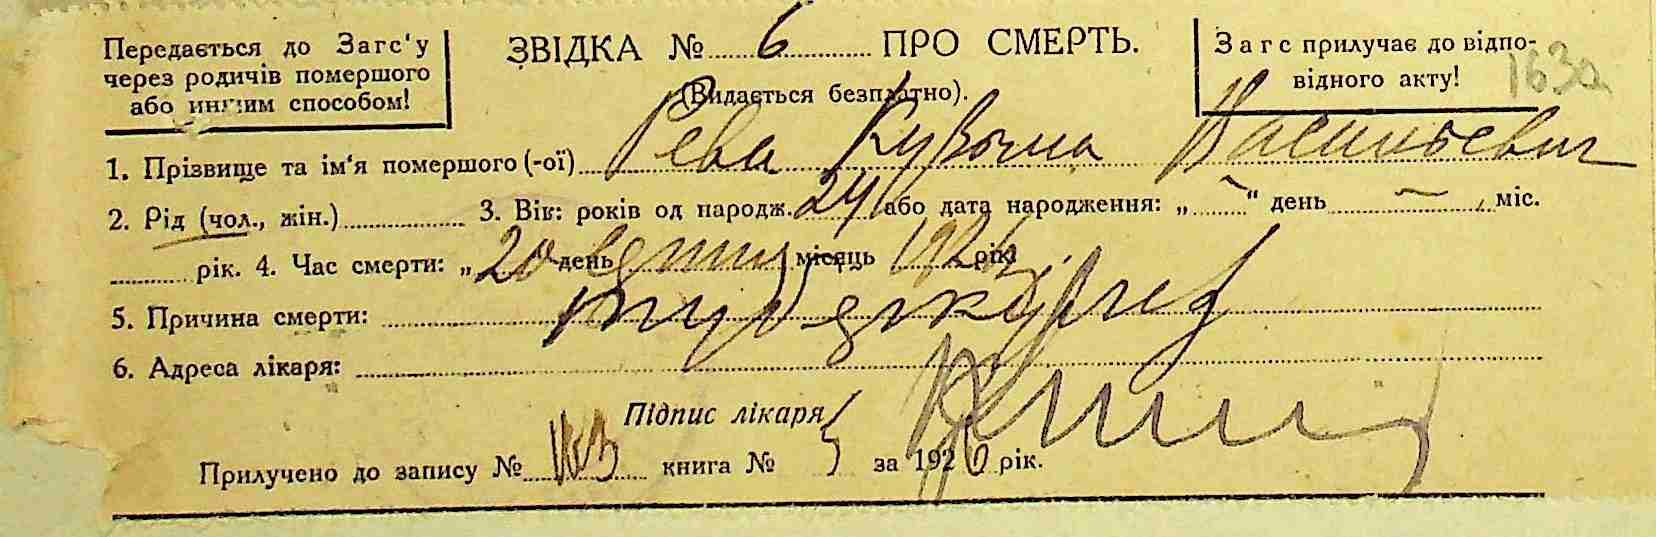 Передається до Загс'у
через родичів помершого
або иншим способом!
ЗВІДКА № 6 ПРО СМЕРТЬ.
(Видається безплатно).
Загс прилучає до відпо-
відного акту!
163а
1. Прізвище та ім'я помершого (-ої) Рева Кузьма Васильевич
2. Рід (чол., жін.) 3. Вік: років од народж. 24 або дата народження: „ — “ день — , міс.
рік. 4. Час смерти: „ 20 день місяць 1926 рік
5. Причина смерти: туберкулез
6. Адреса лікаря:
Підпис лікаря
Прилучено до запису № 163 книга № 5 за 1926 рік.